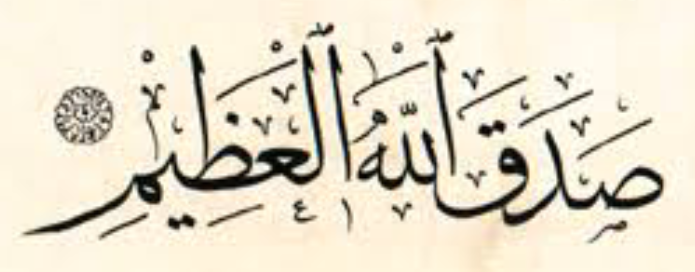 صَدَقَ ٱللّٰهُ ٱلْعَظِيْمِ